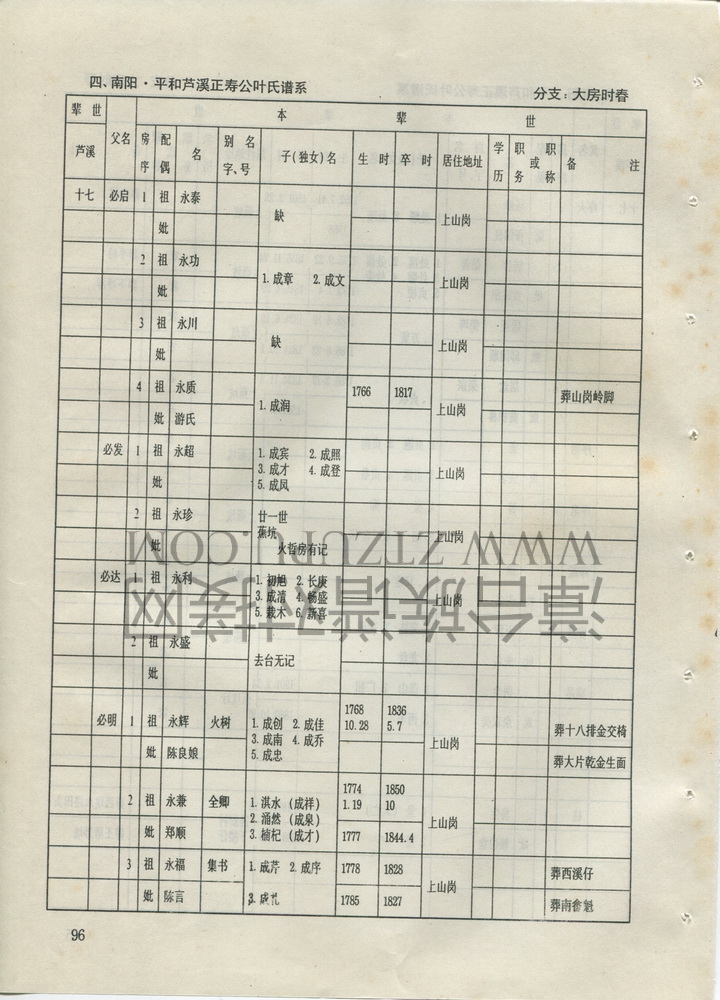 四、南阳·平和芦溪正寿公叶氏谱系 分支：大房时春
辈世 本 辈 世
芦溪 父名 房序 配偶 名 别名字、号 子(独女)名 生时 卒时 居住地址 学历 职务或职称 备注
十七 必启 1 祖 永泰 缺 上山岗
妣
2 祖 永功 1.成章 2.成文 上山岗
妣
3 祖 永川 缺 上山岗
妣
4 祖 永质 1.成润 1766 1817 上山岗 葬山岗岭脚
妣 游氏
必发 1 祖 永超 1.成宾 2.成照 上山岗
3.成才 4.成登
妣 5.成凤
2 祖 永珍 廿一世 上山岗
蕉坑
妣 火哲房有记
必达 1 祖 永利 1.初旭 2.长庚 上山岗
3.成清 4.畅盛
5.栽木 6.新喜
2 祖 永盛 去台无记
妣
必明 1 祖 永辉 火树 1.成创 2.成佳 1768 10.28 1836 5.7 上山岗 葬十八排金交椅
3.成南 4.成乔
妣 陈良娘 5.成忠 葬大片乾金生面
2 祖 永兼 全卿 1.淇水(成祥) 1774 1.19 1850 10 上山岗
2.涌然(成泉)
妣 郑顺 3.楠杞(成才) 1777 1844.4
3 祖 永福 集书 1.成芹 2.成序 1778 1828 上山岗 葬西溪仔
妣 陈言 3.成礼 1785 1827 葬南畲魁
96
WWW.ZTZUPU.COM
漳台族谱对接网